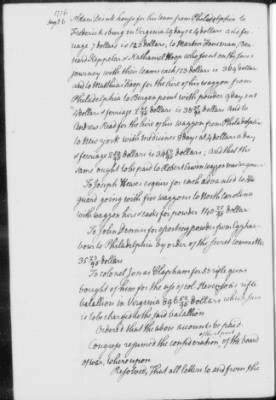 1776.
Aug 26
house for his team from Philadelphia to
Fredericksburg in Virginia 29 days a 4 dollars and for
riage 7 dollars is 123 dollars; to Martin Housman, Ber
nard Keppeler & Nathaniel Hoop who went on the same
journey with their teams each 123 dollars is 369 dollars
and to Matthias Koop for the hire of his waggon from
Philadelphia to Burgen point with powder 9 days at
4 dollars & ferriage dollars is dollars and to
Andrew Read for the hire of his waggon from Philadelphia
to New york with medicines 8 days at 4 dollars a day
& ferriage dollars is dollars; and that the
same ought to be paid to Robert Erwin waggon master
To Joseph Hewes esquire for cash advanced to the
guard going with five waggons to North Carolina
with waggon hire & cash for powder 140 dollars
To John Donnan for sporting powder from
town to Philadelphia by order of the secret committee
35 dollars
To colonel Jonas Clapham for 50 rifle guns
bought of him for the use of col rifle
batallion in Virginia 896 dollars which sum
is to be charged to the said batallion
Ordered that the above accounts be paid.
Congress resumed the consideration of the report of the board
of war, whereupon
Resolved, That all letters to and from the